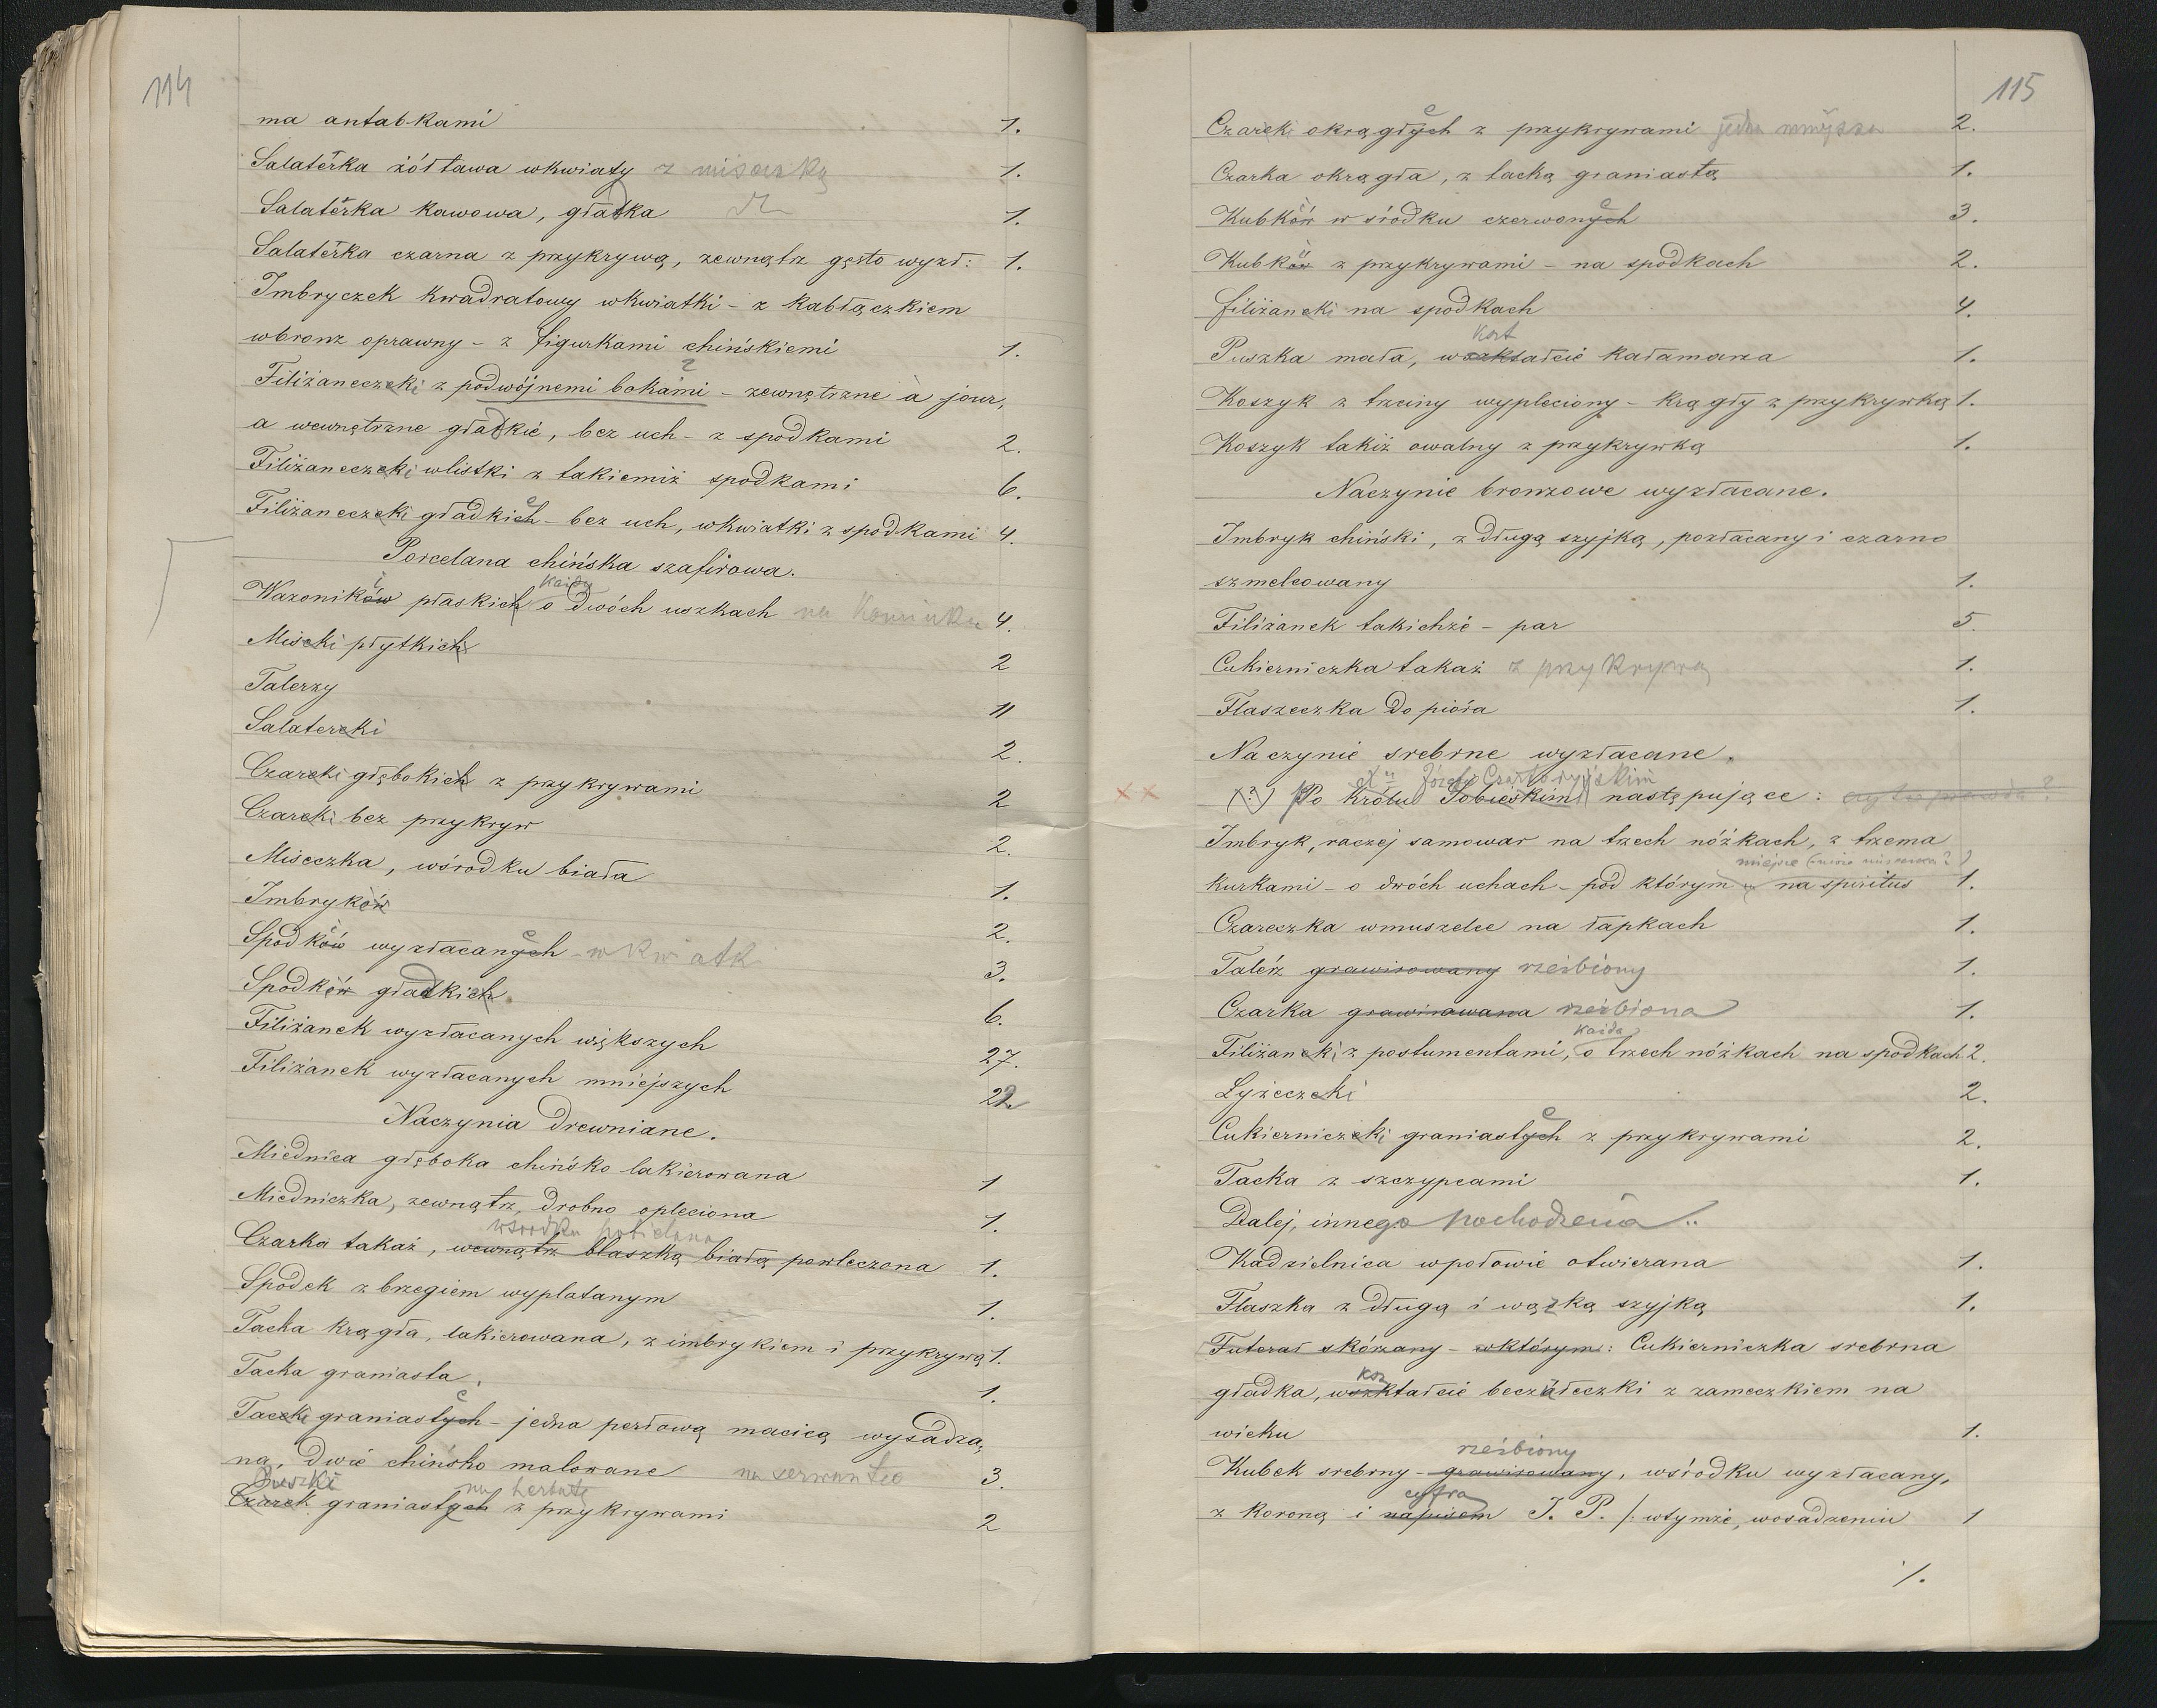 114
ma antabkami 1.
Salatérka żółtawa wkwiaty z miseczką 1.
Salatérka kawowa, gładka 1.
Salatérka czarna z przykrywą, zewnątrz gęsto wyzł: 1.
Imbryczek kwadratowy wkwiatki - z kabłączkiem
wbronz oprawny - z figurkami chińskiemi 1.
?
Filiżaneczki z podwójnemi bokami - zewnętrzne à jour,
a wewnętrzne gładkie, bez uch - z spodkami 2.
Filiżaneczki wlistki z takiemiż spodkami 6.
Filiżaneczki gładkich - bez uch, wkwiatki z spodkami 4.
Porcelana chińska szafirowa.
każdy
Wazoników płaskich o dwóch uszkach na kominku 4.
Miseki płytkich 2
Talerzy 11
Salaterki 2.
Czarki głębokich z przykrywami 2
Czarki bez przykryw 2.
Miseczka, wśrodku biała 1.
Imbryków 2.
Spodków wyzłacanych - w kwiatk 3.
Spodków gładkich 6.
Filiżanek wyzłacanych większych 27.
Filiżanek wyzłacanych mniejszych 22.
Naczynia drewniane.
Miednica głęboka chińsko lakierowana 1
Miedniczka, zewnątrz, drobno opleciona 1.
wśrodku pobielana
Czarka takaż, wewnątrz blaszką białą powleczona 1.
Spodek z brzegiem wyplatanym 1.
Tacka krągła, lakierowana, z imbrykiem i przykrywą 1.
Tacka graniasta. 1.
Tacki graniastych - jedna perłową macicą wysadza,
na, dwie chińsko malowane na serwantce 3.
Puszki na herbatę
Czarek graniastych z przykrywami 2
115
Czarki okrągłych z przykrywami jedna mniejsza 2.
Czarka okrągła, z tacką graniastą 1.
Kubków w środku czerwonych 3.
Kubków z przykrywami - na spodkach 2.
filiżanki na spodkach 4.
kszt
Puszka mała, wkształcie kałamarza 1.
Koszyk z trzciny wypleciony - krągły z przykrywką 1.
Koszyk takiż owalny z przykrywką 1.
Naczynie bronzowe wyzłacane.
Imbryk chiński, z długą szyjką, pozłacany i czarno
szmelcowany 1.
Filiżanek takichże - par 5.
Cukierniczka takaż z przykrywą 1.
Flaszeczka do pióra 1.
Naczynie srebrne wyzłacane.
Józefie Czartoryjskim
xx (?) Po Królu Sobieskim następujące: czy to prawda?
Imbryk, raczej samowar na trzech nóżkach, z trzema
miejsce
kurkami - o dwóch uchach - pod którym na spiritus 1.
Czareczka wmuszelce na łapkach 1.
Talérz grawirowany rzeźbiony 1.
Czarka grawirowana rzeźbiona 1.
każda
Filiżanki z postumentami, o trzech nóżkach na spodkach 2.
Łyżeczki 2.
Cukierniczki graniastych z przykrywami 2.
Tacka z szczypcami 1.
Dalej, innego pochodzenia..
Kadzielnica wpołowie otwierana 1.
Flaszka z długą i wązką szyjką 1.
Futerał skórzany - wktórym: Cukierniczka srebrna
ksz
gładka, wkształcie beczułeczki z zameczkiem na
wieku 1.
rzeźbiony
Kubek srebrny - grawirowany, wśrodku wyzłacany,
cyfrą
z koroną i napisem J. P. /: wtymże, wosadzeniu 1
/.